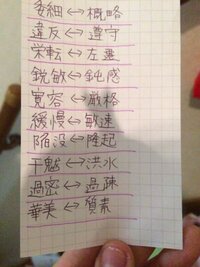 委細↔概略
違反↔遵守
栄転↔左遷
鋭敏↔鈍感
寛容↔厳格
緩慢↔敏速
陥没↔隆起
干魃↔洪水
過密↔過疎
華美↔質素